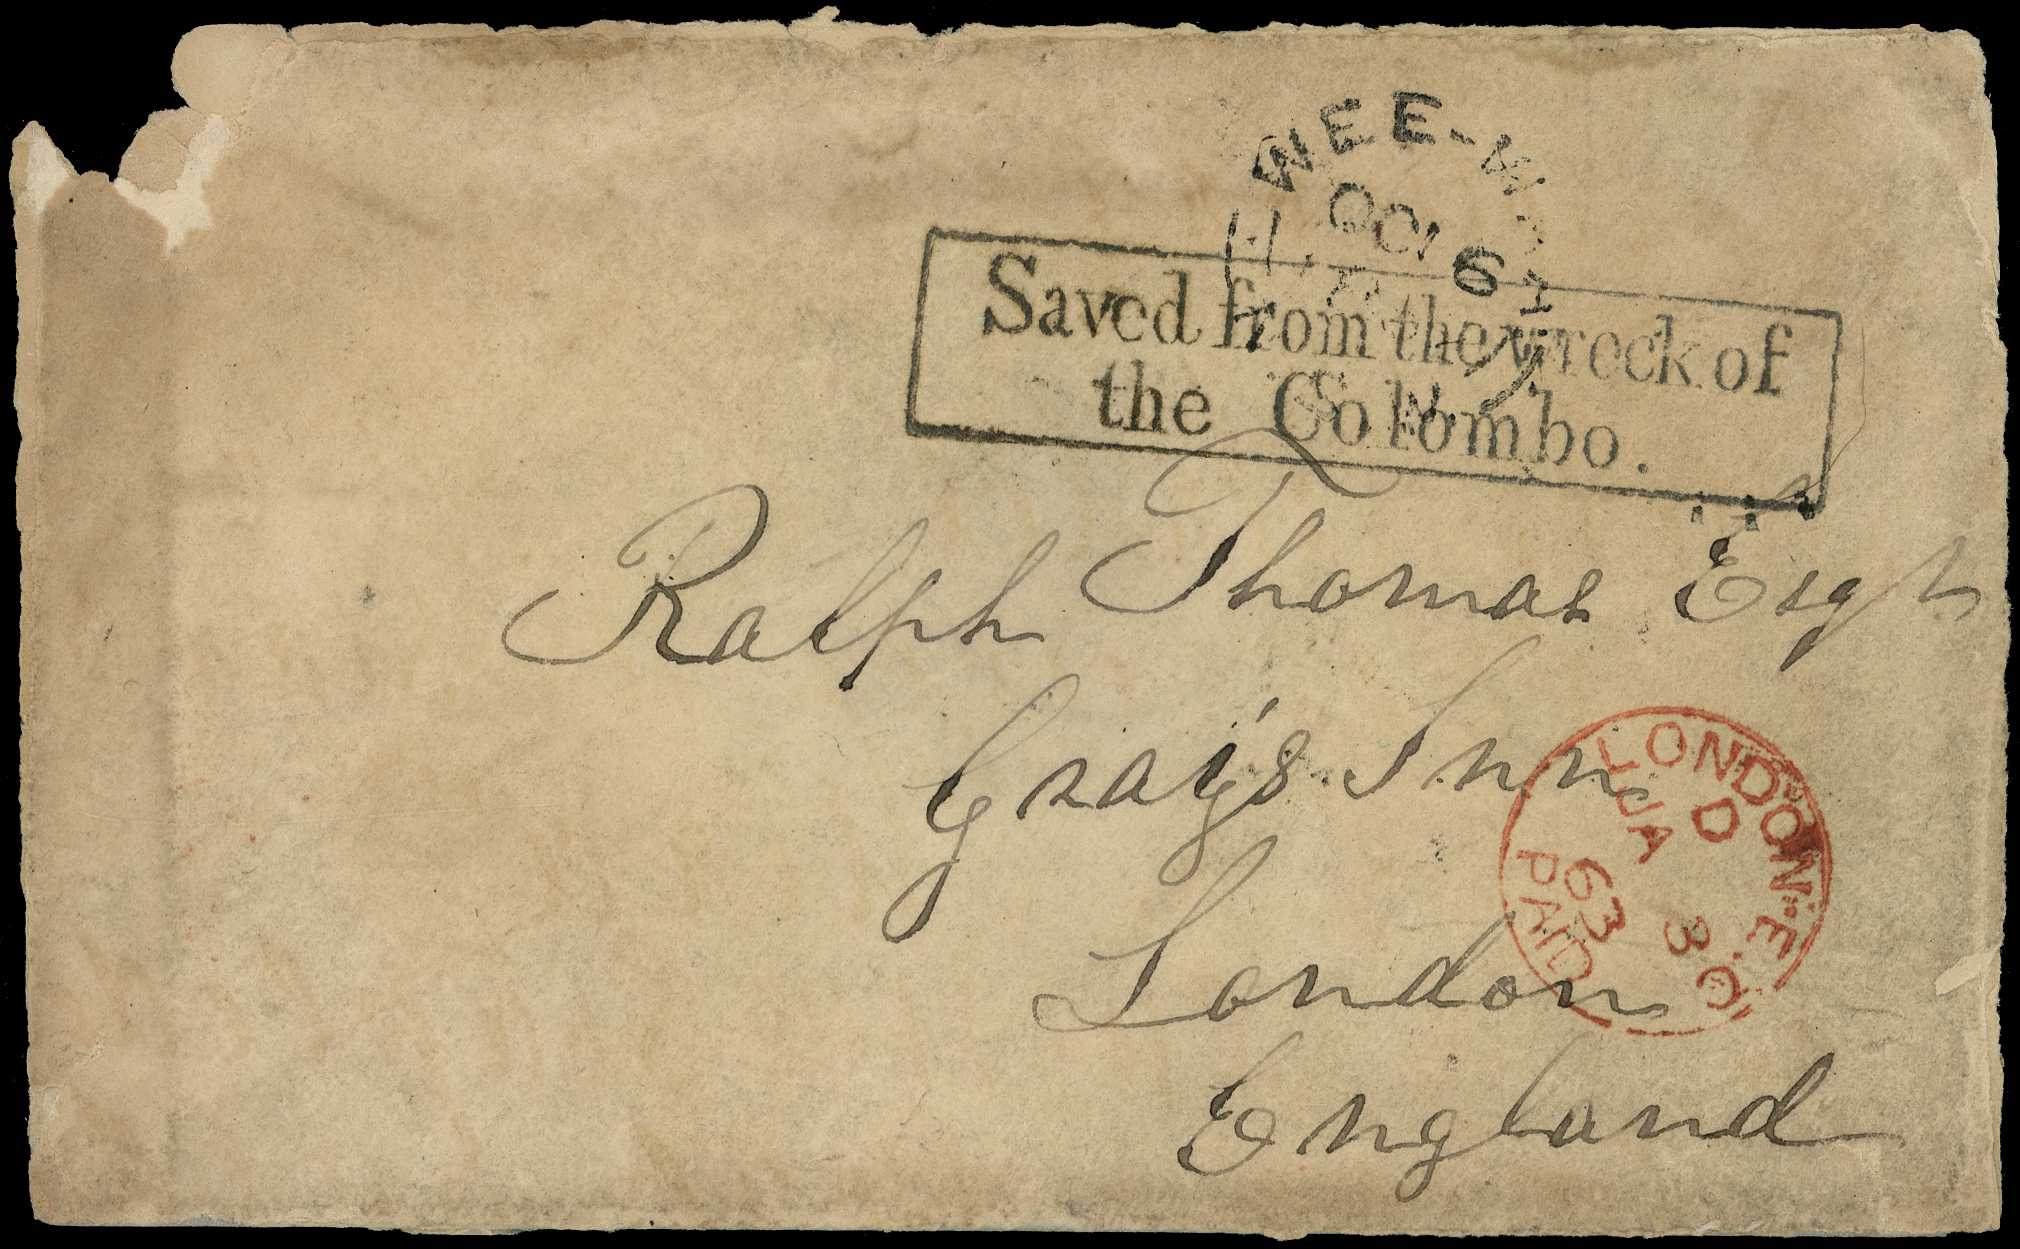 WEE-W
N.S.W.
Saved from the wreck of
the Colombo.
Ralph Thomas Esqr
Gray's Inn
London
England
LONDON E.C.
D
JA 30
63
PAID